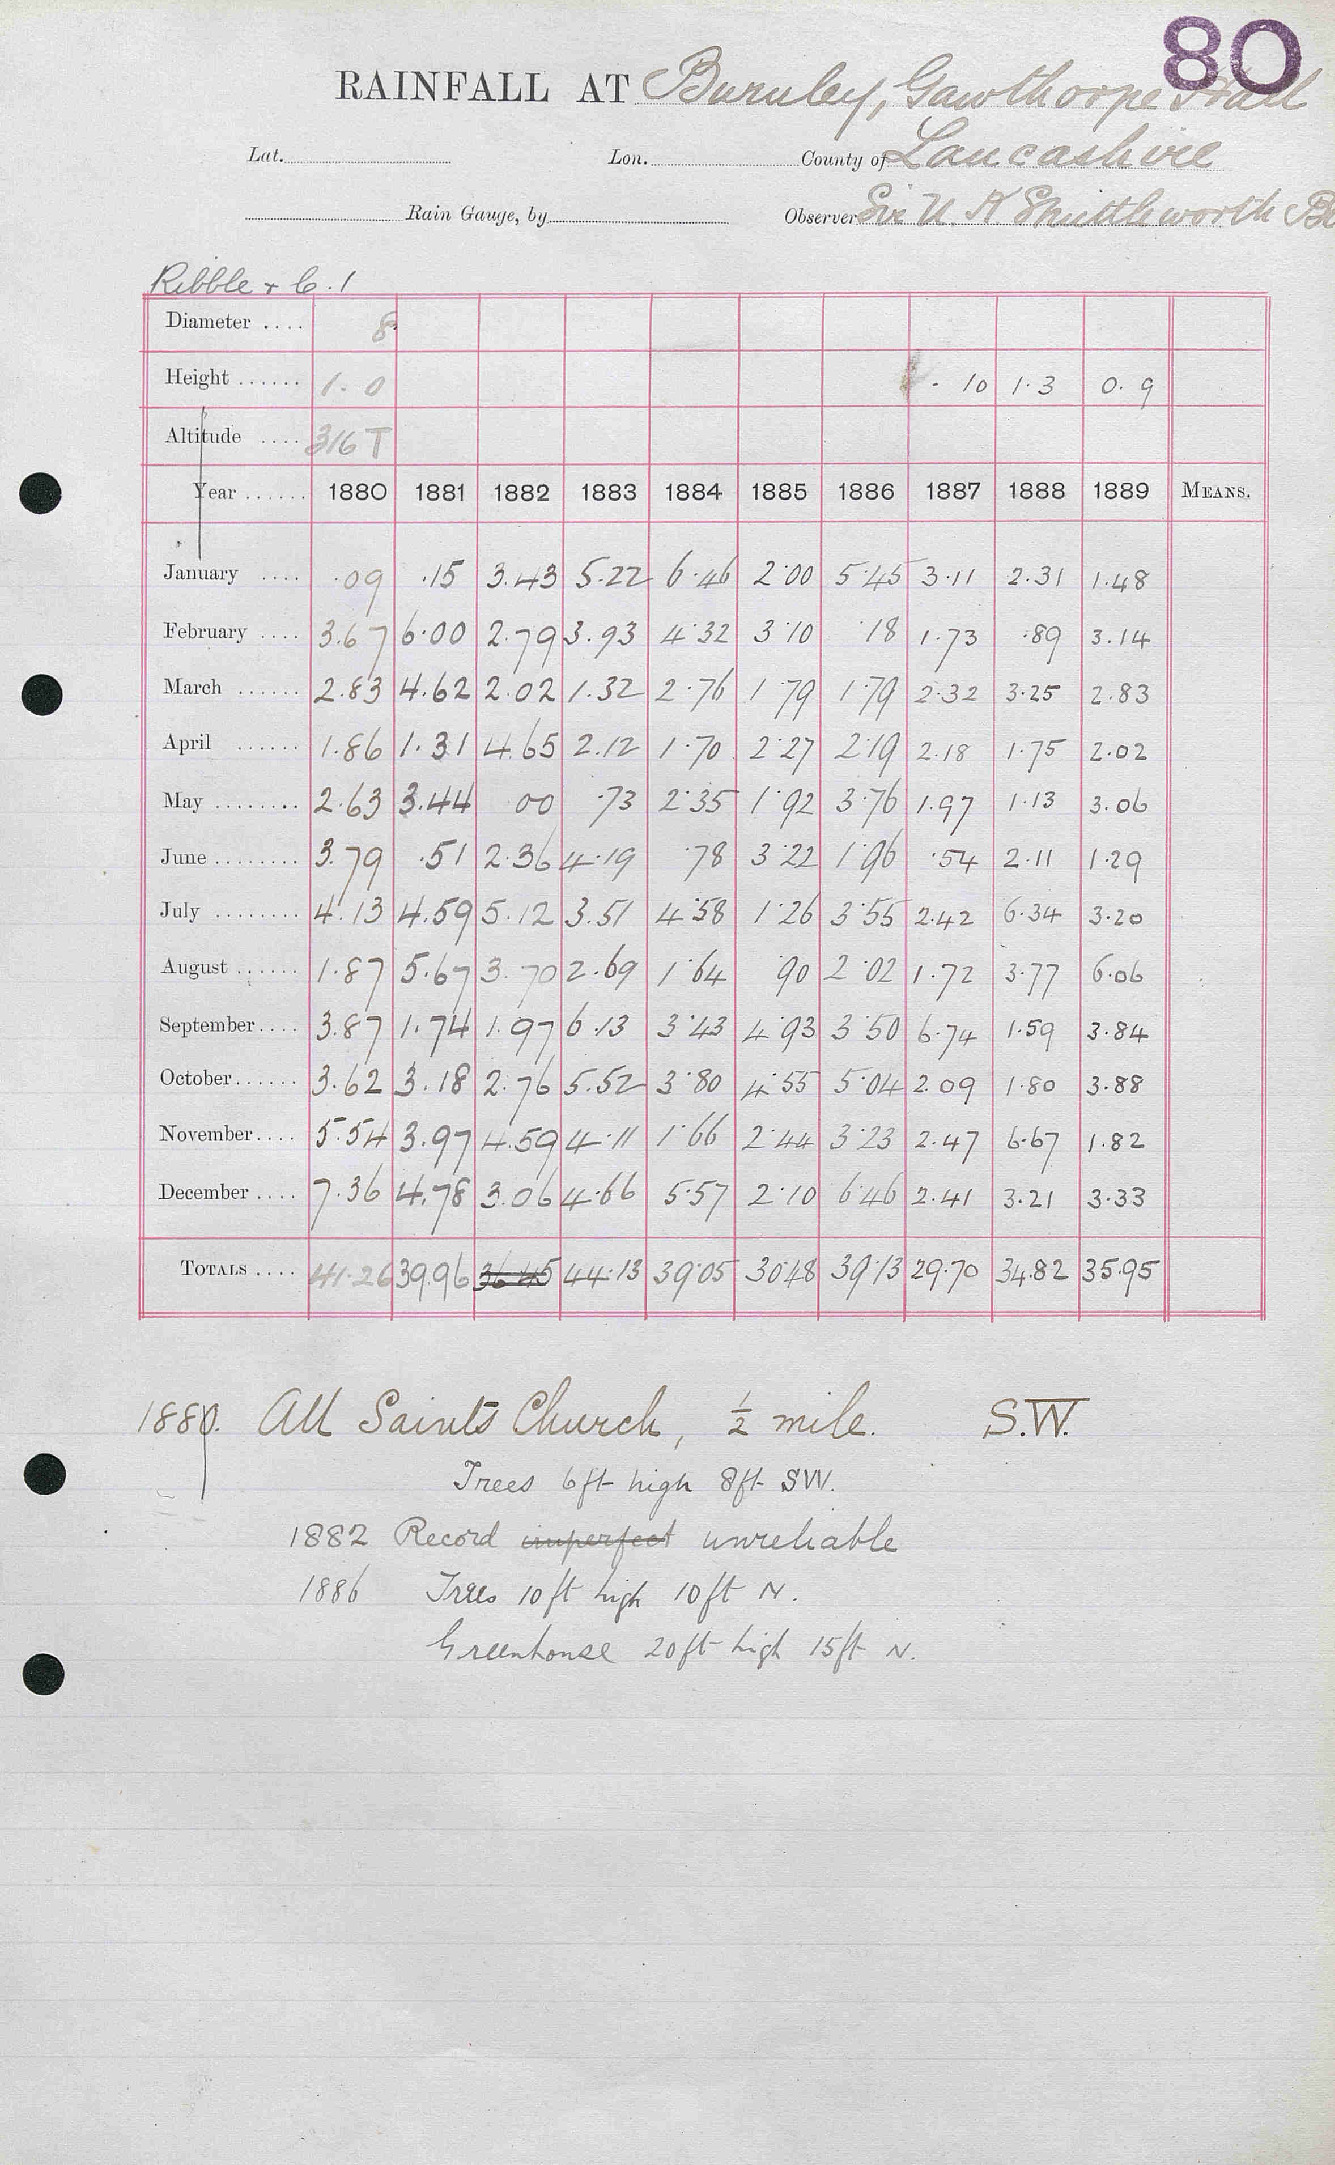 80
RAINFALL AT Burnley, Gawthorpe Hall
Lat. Lon. County of Lancashire
Rain Gauge, by Observer Sir U. K Shuttleworth
Ribble + C. 1
Diameter .... 8
Height ...... 1. 0 . 10 1.3 0. 9
Altitude .... 316 T
Year ...... 1880 1881 1882 1883 1884 1885 1886 1887 1888 1889 MEANS.
January .... .09 .15 3.43 5.22 6.46 2.00 5.45 3.11 2.31 1.48
February .... 3.67 6.00 2.79 3.93 4.32 3.10 .18 1.73 .89 3.14
March ...... 2.83 4.62 2.02 1.32 2.76 1.79 1.79 2.32 3.25 2.83
April ...... 1.86 1.31 4.65 2.12 1.70 2.27 2.19 2.18 1.75 2.02
May ........ 2.63 3.44 00 .73 2.35 1.92 3.76 1.97 1.13 3.06
June ........ 3.79 .51 2.36 4.19 .78 3.22 1.96 .54 2.11 1.29
July ........ 4.13 4.59 5.12 3.51 4.58 1.26 3.55 2.42 6.34 3.20
August ...... 1.87 5.67 3.70 2.69 1.64 .90 2.02 1.72 3.77 6.06
September.... 3.87 1.74 1.97 6.13 3.43 4.93 3.50 6.74 1.59 3.84
October...... 3.62 3.18 2.76 5.52 3.80 4.55 5.04 2.09 1.80 3.88
November.... 5.54 3.97 4.59 4.11 1.66 2.44 3.23 2.47 6.67 1.82
December .... 7.36 4.78 3.06 4.66 5.57 2.10 6.46 2.41 3.21 3.33
TOTALS .... 41.26 39.96 36.45 44.13 39.05 30.48 39.13 29.70 34.82 35.95
1880. All Saints Church, ½ mile. S.W.
Trees 6ft high 8ft SW.
1882 Record imperfect unreliable
1886 Trees 10ft high 10ft N.
Greenhouse 20ft high 15ft N.